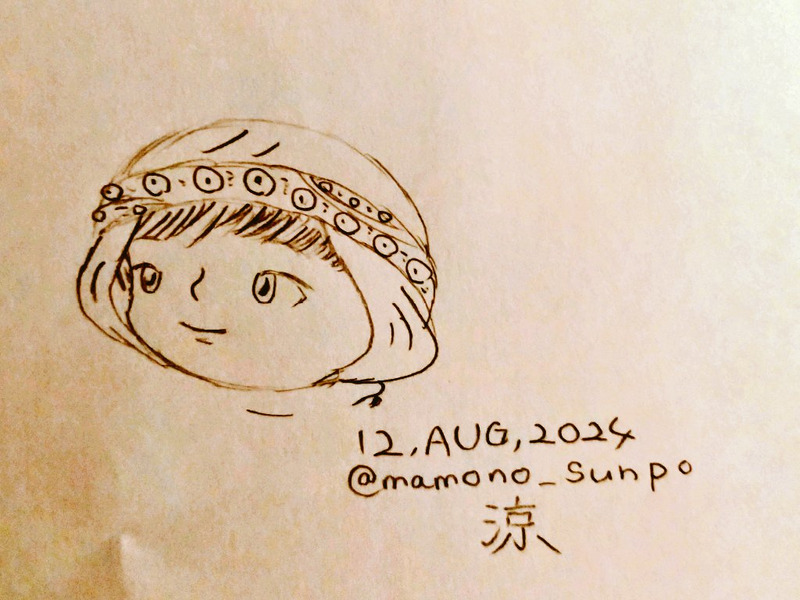 12,AUG,2024
@mamono_sunpo
涼